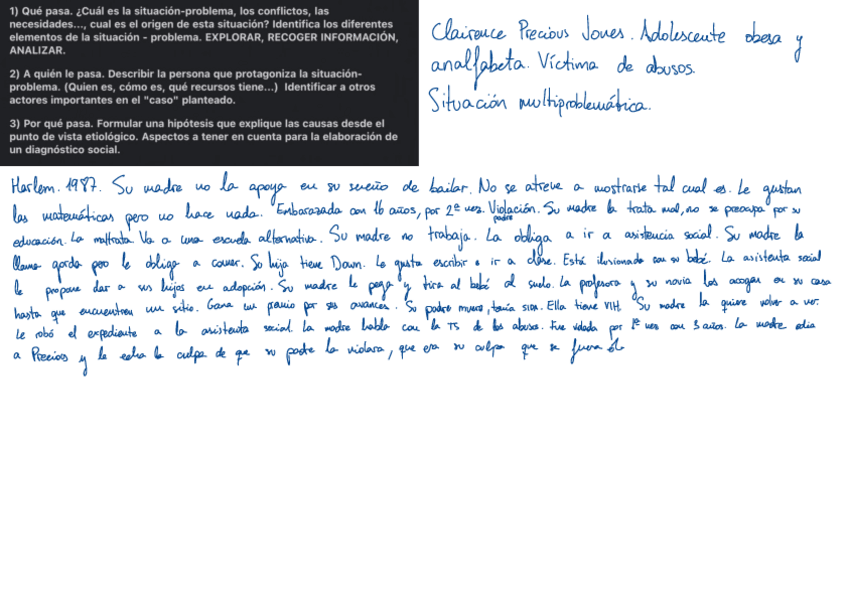 1) Qué pasa. ¿Cuál es la situación-problema, los conflictos, las
necesidades..., cual es el origen de esta situación? Identifica los diferentes
elementos de la situación - problema. EXPLORAR, RECOGER INFORMACIÓN,
ANALIZAR.
2) A quién le pasa. Describir la persona que protagoniza la situación-
problema. (Quien es, cómo es, qué recursos tiene...) Identificar a otros
actores importantes en el "caso" planteado.
3) Por qué pasa. Formular una hipótesis que explique las causas desde el
punto de vista etiológico. Aspectos a tener en cuenta para la elaboración de
un diagnóstico social.
Claireece Precious Jones. Adolescente obesa y
analfabeta. Víctima de abusos.
Situación multiproblemática.
Harlem. 1987. Su madre no la apoya en su sueño de bailar. No se atreve a mostrarse tal cual es. Le gustan
las matemáticas pero no hace nada. Embarazada con 16 años, por 2ª vez. Violación. Su madre la trata mal, no se preocupa por su
padre
educación. La maltrata. Va a una escuela alternativa. Su madre no trabaja. La obliga a ir a asistencia social. Su madre la
llama gorda pero le obliga a comer. Su hija tiene Down. Le gusta escribir e ir a clase. Está ilusionada con su bebé. La asistenta social
le propone dar a sus hijos en adopción. Su madre le pega y tira al bebé al suelo. La profesora y su novia los acogen en su casa
hasta que encuentren un sitio. Gana un premio por sus avances. Su padre muere, tenía SIDA. Ella tiene VIH. Su madre la quiere volver a ver.
Le robó el expediente a la asistenta social. La madre habla con la TS de los abusos. Fue violada por 1ª vez con 3 años. La madre odia
a Precious y le echa la culpa de que su padre la violara, que era su culpa que se fuera él